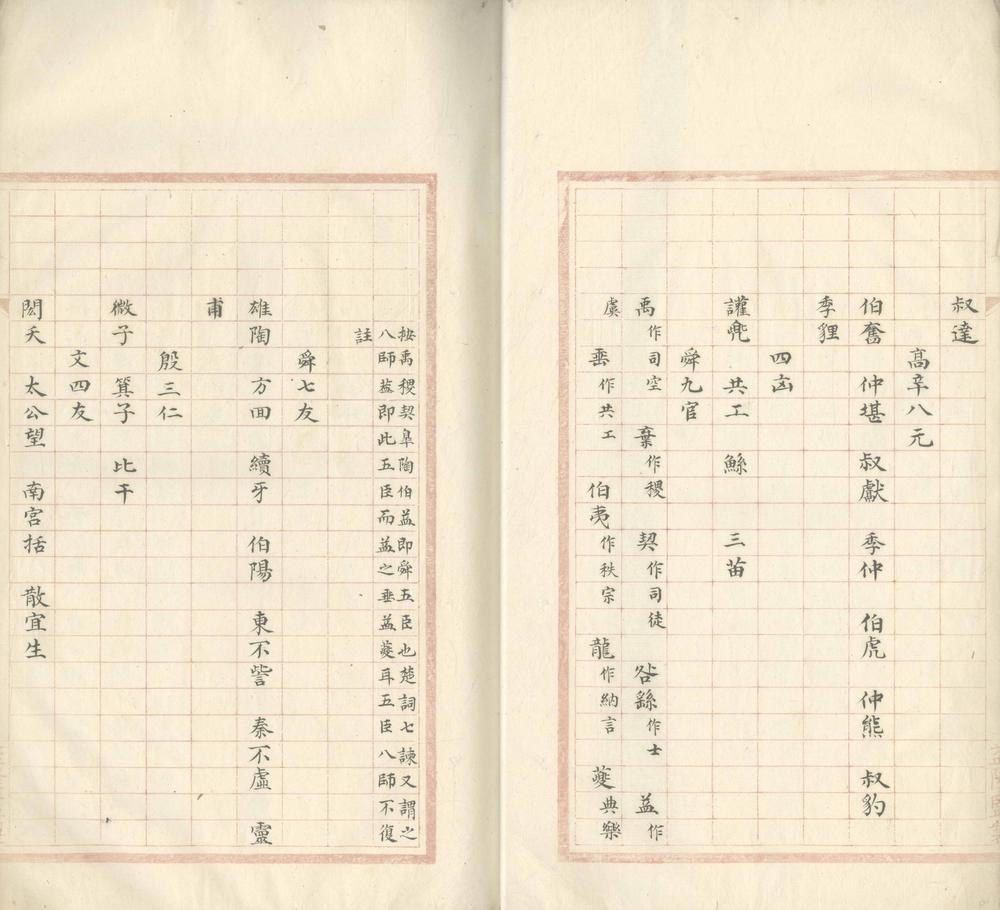 叔達
高辛八元
伯奮 仲堪 叔獻 季仲 伯虎 仲熊 叔豹
季貍
四凶
讙兜 共工 鯀 三苗
舜九官
禹作司空 棄作稷 契作司徒 咎繇作士 益作
虞 垂作共工 伯夷作秩宗 龍作納言 夔典樂
按禹稷契皐陶伯益即舜五臣也楚詞七諫又謂之
八師葢即此五臣而益之垂益夔耳五臣八師不復
註
舜七友
雄陶 方回 續牙 伯陽 東不訾 秦不虛 靈
甫
殷三仁
微子 箕子 比干
文四友
閎夭 太公望 南宮括 散宜生